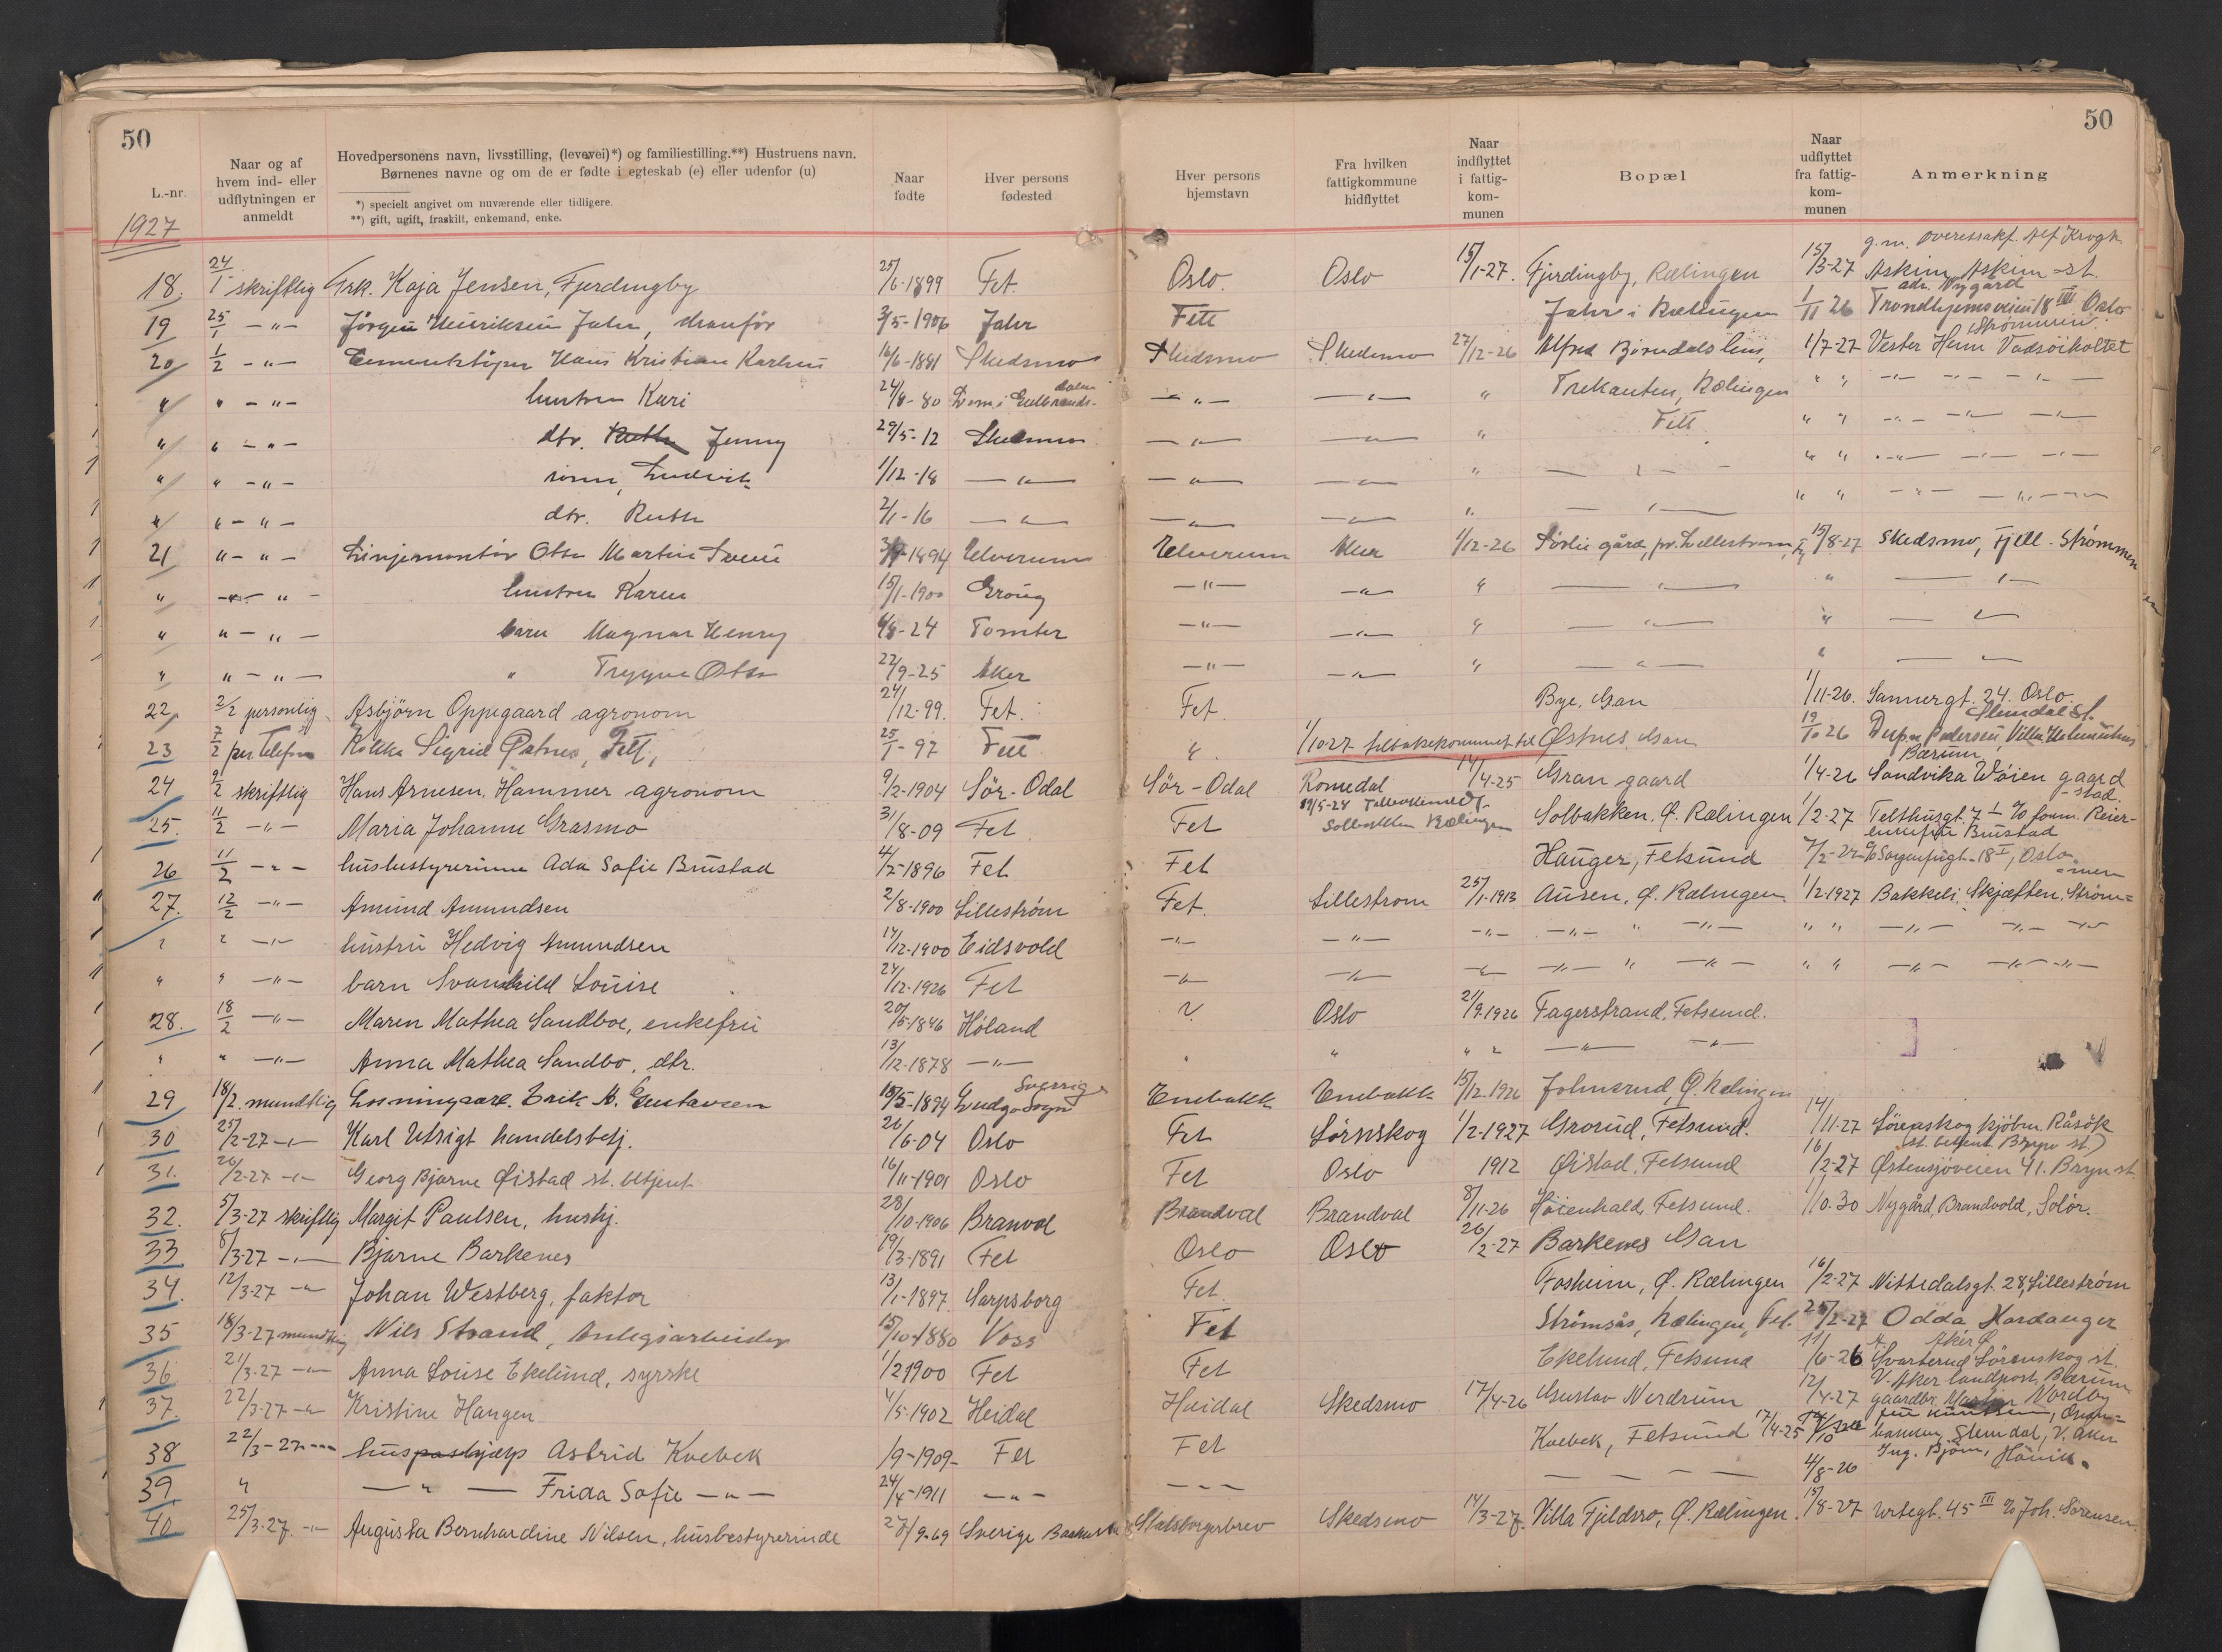 50
50
L.-nr.
Naar og af hvem ind- eller udflytningen er anmeldt
Hovedpersonens navn, livsstilling, (levevei)*) og familiestilling.**) Hustruens navn.
Børnenes navne og om de er fødte i egteskab (e) eller udenfor (u)
*) specielt angivet om nuværende eller tidligere.
**) gift, ugift, fraskilt, enkemand, enke.
Naar fødte
Hver persons fødested
Hver persons hjemstavn
Fra hvilken fattigkommune hidflyttet
Naar indflyttet i fattig-kom-munen
Bopæl
Naar udflyttet fra fattig-kom-munen
Anmerkning
1927
18. 24/1 skriftlig Frk. Kaja Jensen, Fjerdingby 25/6-1899 Fet. Oslo. Oslo 15/1-27. Fjerdingby, Rælingen 15/3-27 Askim, Askim st.
19 25/1 -"- Jörgen Henriksen Jahr 3/5-1906 Jahr Fett Jahr i Rælingen 1/11 26 Trondhjemsveien 18 III Oslo
20 1/2 -"- Hans Kristian Karlsen 16/6-1881 Skedsmo Skedsmo Skedsmo 27/12-26 Alfred Björndals hus, 1/7-27 Vester Hem Vadsöiholtet
" " -"- hustru Kari 24/8-80 -"- -"- " Trekanten, Rælingen " " -"-
" " -"- dtr. Jenny 29/5-12 Skedsmo -"- -"- " Fett " " -"-
" " -"- sönn, Ludvik 1/12-18 -"- -"- -"- " -"- " " -"-
" " -"- dtr. Ruth 2/1-16 -"- -"- -"- " -"- " " -"-
21 " -"- Linjemontör Otto Martin 1894 Elverum Elverum Aker 1/12-26 Sörli gård, pr. Lilleström, 15/8-27 Skedsmo, Fjell - Strømmen
" -"- hustru Karen 15/1-1900 Grong -"- -"- " -"- " -"-
" " -"- barn Magnar Henry 24 Tomter -"- -"- " -"- " -"-
" " -"- " Trygve Otto 22/9-25 Aker -"- -"- " -"- " -"-
22 2/2 personlig Asbjörn Oppegaard agronom 24/12-99. Fet. Fet. Bye, Gan 1/11-26. Sannergt. 24. Oslo.
23 7/2 per Telefon Kokka Sigrid Østnes, Fett, 25/1-97 Fett " 1/10 27 tilbakekommet til Østnes, Gan 19/10 26 Pedersen, Villa
Bærum
24 9/2 skriftlig Hans Arnesen Hammer agronom 9/2-1904 Sör-Odal Sör-Odal Romedal 14/4-25 Gran gaard 1/4-26 Sandvika Wöien gaard
25. 11/2 -"- Maria Johanne Grasmo 31/8-09 Fet Fet Solbakken Rælingen Solbakken. Ø. Rælingen 1/2-27 Telthusgt. 7 I
26 11/2 -"- husbestyrerinne Ada Sofie Brustad 4/5-1896 Fet Fet Hauger, Fetsund 18 I, Oslo
27. 12/2 -"- Amund Amundsen 2/8-1900 Lilleström Fet. Lillestrom 25/1-1913 Ausen, Ø. Rælingen. 1/2-1927 Bakkeli, Skjætten, Ström=
" " -"- hustru Hedvig Amundsen 14/12-1900 Eidsvold -"- -"- -"- -"- " -"- " " -"- -"-
" " -"- barn Svanhild Louise 24/12-1926 Fet -"- -"- -"- -"- " -"- " " -"- -"-
28. 18/2 -"- Maren Mathea Sandboe, enkefru 20/5-1846 Höland ? Oslo 21/9-1926 Fagerstrand, Fetsund.
" " -"- Anna Mathea Sandbo, dtr. 13/12-1878 -"- " " " " -"- -"-
29 18/2 mundtlig Erik A. Gustavsen 1894 Sverige Enebakk Enebakk 15/12-1926 Johnsrud, Ø. Rælingen
30 25/2-27 -"- Karl Utsigt handelsbetj. 26/6-04 Oslo Fet Sörnskog 1/2-1927 Grorud, Fetsund. 14/11-27 Sörenskog kjöbm. Råsök
31. 26/2-27 -"- Georg Bjarne Øistad st. betjent 16/11-1901 Oslo Fet Oslo 1912 Øistad, Fetsund 16/2-27 Østensjöveien 41. Bryn st
32. 5/3-27 skriftlig Margit Paulsen, hushj. 28/10-1906 Branvol Brandval Brandval 8/11-26 Höienhald, Fetsund. 1/10-30 Nygård, Brandvold, Solör.
33 8/3-27 -"- Bjarne Barkenes 19/3-1891 Fet Oslo Oslo 26/2-27 Barkenes Gan
34. 12/3-27 -"- Johan Westberg, faktor 13/1-1897. Sarpsborg Fet. Fosheim, Ø. Rælingen 16/2-27 Nittedalsgt. 28, Lilleström
35 18/3-27 mundtlig Nils Strand, Anlegsarbeider 15/10-1880 Voss Fet Strömsås, Rælingen, Fet. 25/2-27 Odda Hardanger
36 21/3-27 -"- Anna Louise Ekelund, syrske 1/2 1900 Fet Fet Ekelund, Fetsund 11/6-26 Svarterud Sörenskog st.
37. 22/3-27 -"- Kristine Haugen 4/5-1902 Heidal Heidal Skedsmo 17/4-26 Gustav Nerdrum 12/4-27 V. Aker landpost, Bærum gaardbr. Nordby
38 22/3-27 -"- Astrid Kvebek 1/9-1909- Fet Fet Kvebek, Fetsund 17/4-25 Slemdal, V. Aker
39. " -"- Frida Sofie -"- 24/4-1911 -"- -"- -"- 4/8-26 Ing. Björn, Hövik
40 25/3-27. -"- Augusta Bernhardine Nilsen, husbestyrerinde 27/9-69 Sverige Statsborgerbrev Skedsmo 14/3-27. Villa Fjeldsro, Ø. Rælingen. 15/8-27 Urtegt. 45 III c/o Joh. Sörensen.